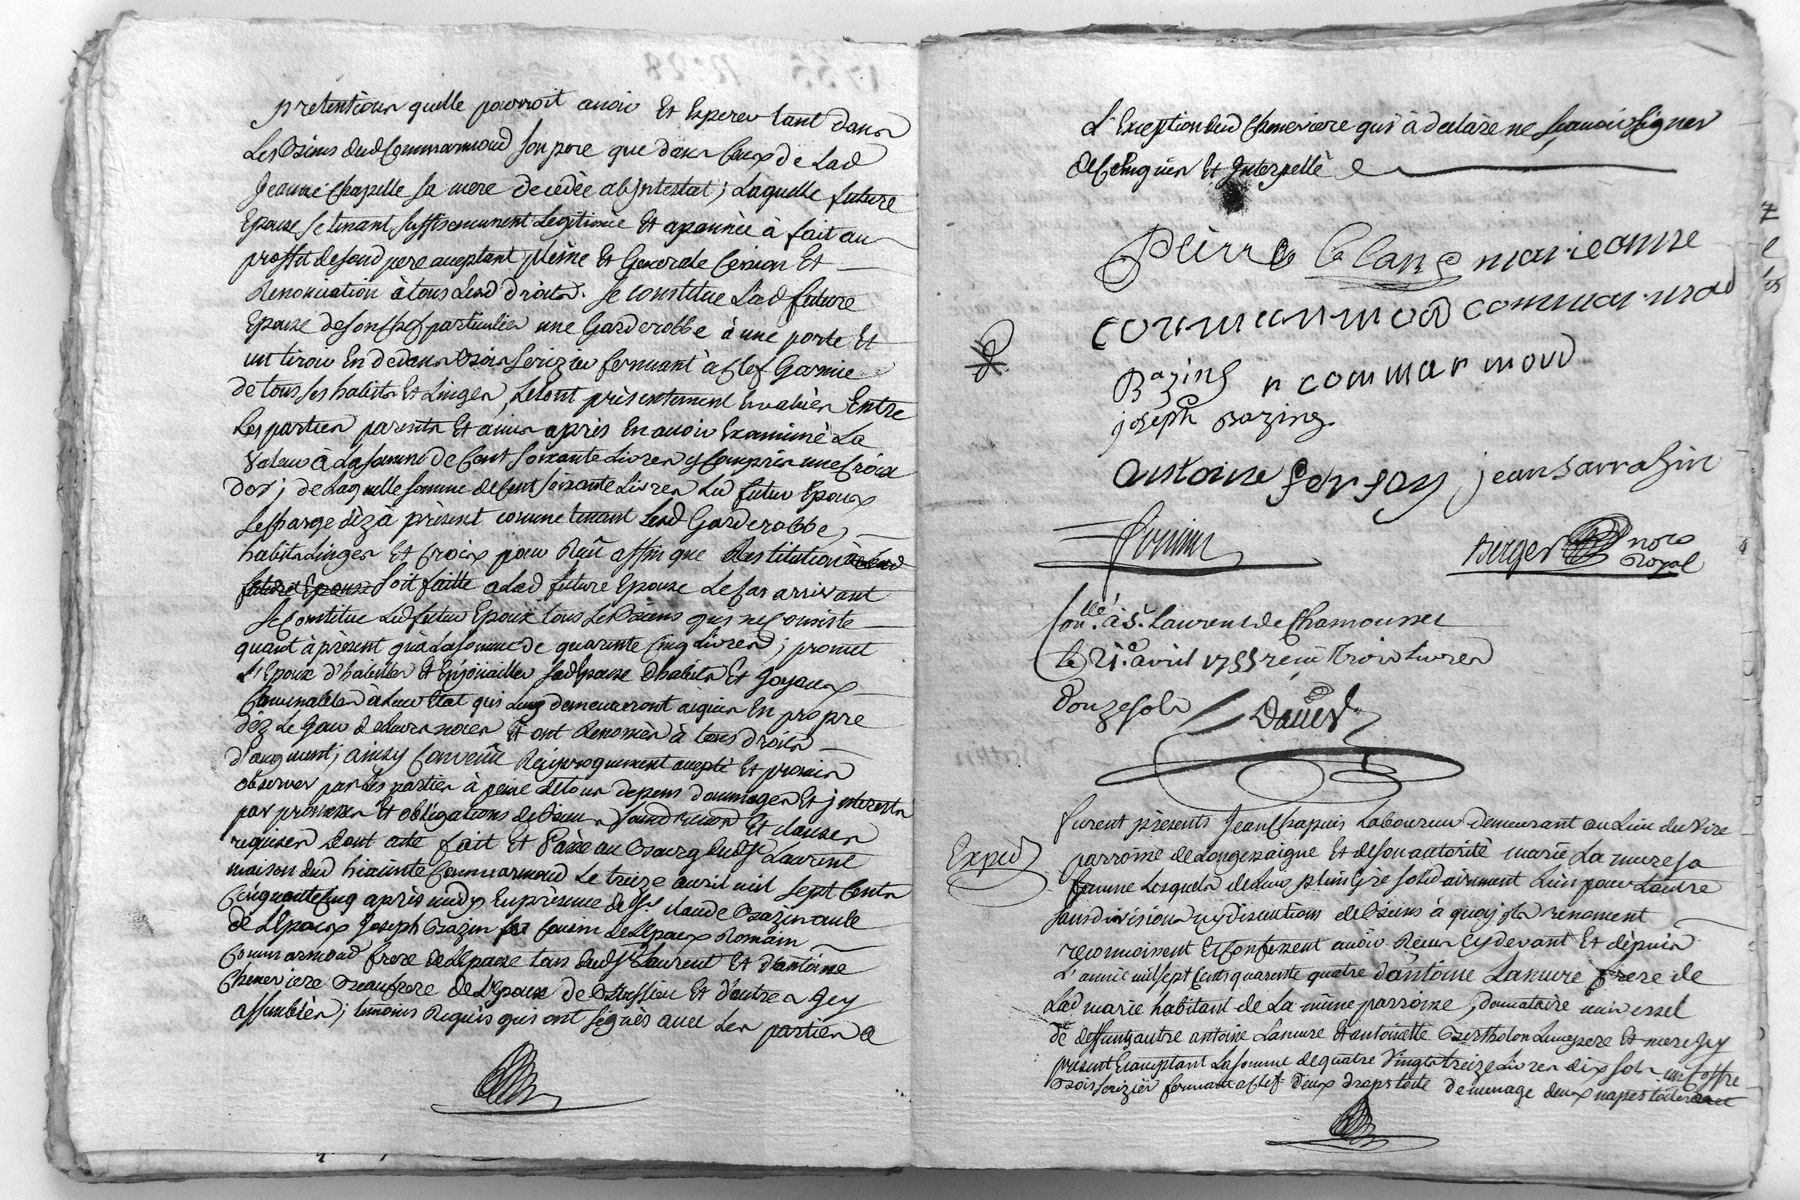 pretentions quelle pourroit avoir Et Esperer tant dans
Les Biens dud Commarmond son pere que dans Ceux de Lad
Jeanne Chapelle sa mere decedée abjntestat; Laquelle future
Epouse se tenant suffisemment Legitimée Et apannée à fait au
proffit desond pere acceptant pleine Et Generale Cession Et
Renonciation à tous Lesd droits. Se constitue Lad future
Epouse de son chef particulier une Garderobbe à une porte Et
un tiroir En dedans Bois Serizier fermant à Clef Garnie
de tous ses habits Et Linges, Le tout presentement Evalüer Entre
Les parties parents Et amis après En avoir Examiné La
Valeur à La somme de Cent soixante Livres y Compris une Croix
d'or; de Laquelle somme de Cent soixante Livres Led futur Epoux
se Charge dèz à présent comme tenant Lesd Garderobbe,
habits Linges Et Croix pour Reçû affin que Restitution
future Epouse soit faitte a Lad future Epouse Le Cas arrivant
Se Constitue Led futur Epoux tous Ses Biens qui ne Consiste
quant à présent qu'à La somme de quarente Cinq Livres; promet
L'Epoux d'habiller Et Enjoüailler sad Epouse d'habits Et Joyaux
Convenables à Leur Etat qui Luy demeurront aquis En propre
dèz Le jour de Leurs noces Et ont Renoncés à tous droits
d'augment; ainsy Convenû Reciproquement accepté Et promis
observer par Les parties à peine de tous depens dommages Et jnterests
par promesses Et obligations de Biens soumissions Et clauses
requises dont acte fait Et Passé au Bourg dud St Laurent
maison dud hiacinte Commarmond Le treize avril mil sept Cents
Cinquante Cinq après midy En présence de Sr claude Bazin oncle
de L'Epoux Joseph Bazin son Cousin de L'Epoux Romain
Commarmond frere de L'Epouse tous dud St Laurent Et d'antoine
Cheneviere Beaufrere de L'Epoux de Et d'autres Jcy
assemblés; temoins Requis qui ont signés avec Les parties a
L'Exception dud Cheneviere qui à declaré ne sçavoir signer
de Ce Enquis Et Interpellé
pierre le lang marieanne
commarmod commarmod
Bazing r commarmond
joseph Bazing
antoine jean sarrasin
Berger nore
Royal
Con.llé à St Laurent de Chamousset
le 21e avril 1755 reçu trois livres
douze sols David
furent présents Jean Chapuis Laboureur demeurant au Lieu du Vire
Exped
parroisse de Longessaigne Et de son autorité marie La mure sa
femme Lesquels de Leur plein Gré solidairement L'un pour L'autre
sans division ny discution de Biens à quoy jls renoncent
reconnoissent Et Confessent avoir Reçus Cy devant Et dépuis
L'année mil sept Cents quarente quatre d'antoine Lamure frere de
Lad marie habitant de La même parroisse, donnataire universel
de deffunts autre antoine Lamure Et antoinette Bertholon Leurs pere Et mere Jcy
present Et acceptant La somme de quatre Vingts treize Livres dix sols un Coffre
Bois Serizier fermant a Clef deux draps toile de menage deux napes toile